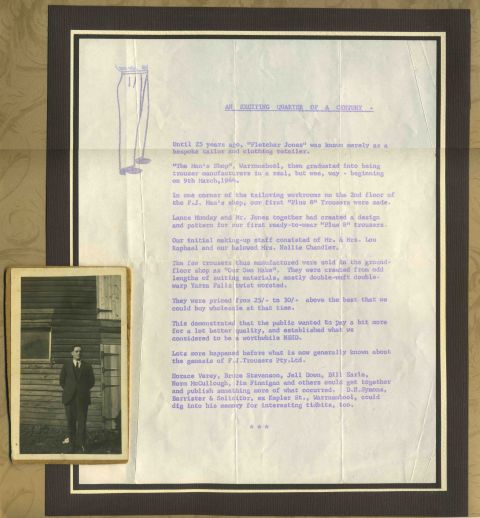 AN EXCITING QUARTER OF A CENTURY -
Until 25 years ago, "Fletcher Jones" was known merely as a
bespoke tailor and clothing retailer.
"The Man's Shop", Warrnambool, then graduated into being
trouser manufacturers in a real, but wee, way - beginning
on 9th March,
In one corner of the tailoring workrooms on the 2nd floor of
the F.J. Man's shop, our first "Plus 8" Trousers were made.
Lance Munday and Mr. Jones together had created a design
and pattern for our first ready-to-wear "Plus 8" trousers.
Our initial making-up staff consisted of Mr. & Mrs. Lou
Raphael and our beloved Mrs. Nellie Chandler.
The few trousers thus manufactured were sold in the ground-
floor shop as "Our Own Make". They were created from odd
lengths of suiting materials, mostly double-weft double-
warp Yarra Falls twist worsted.
They were priced from 25/- to 30/- above the best that we
could buy wholesale at that time.
This demonstrated that the public wanted to pay a bit more
for a lot better quality, and established what we
considered to be a worthwhile NEED.
Lots more happened before what is now generally known about
the genesis of F.J.Trousers Pty.Ltd.
Horace Varey, Bruce Stevenson, Jell Down, Bill Earle,
Norm McCullough, Jim Finnigan and others could get together
and publish something more of what occurred. D.H.Symons,
Barrister & Solicitor, ex Kepler St., Warrnambool, could
dig into his memory for interesting tidbits, too.
* * *